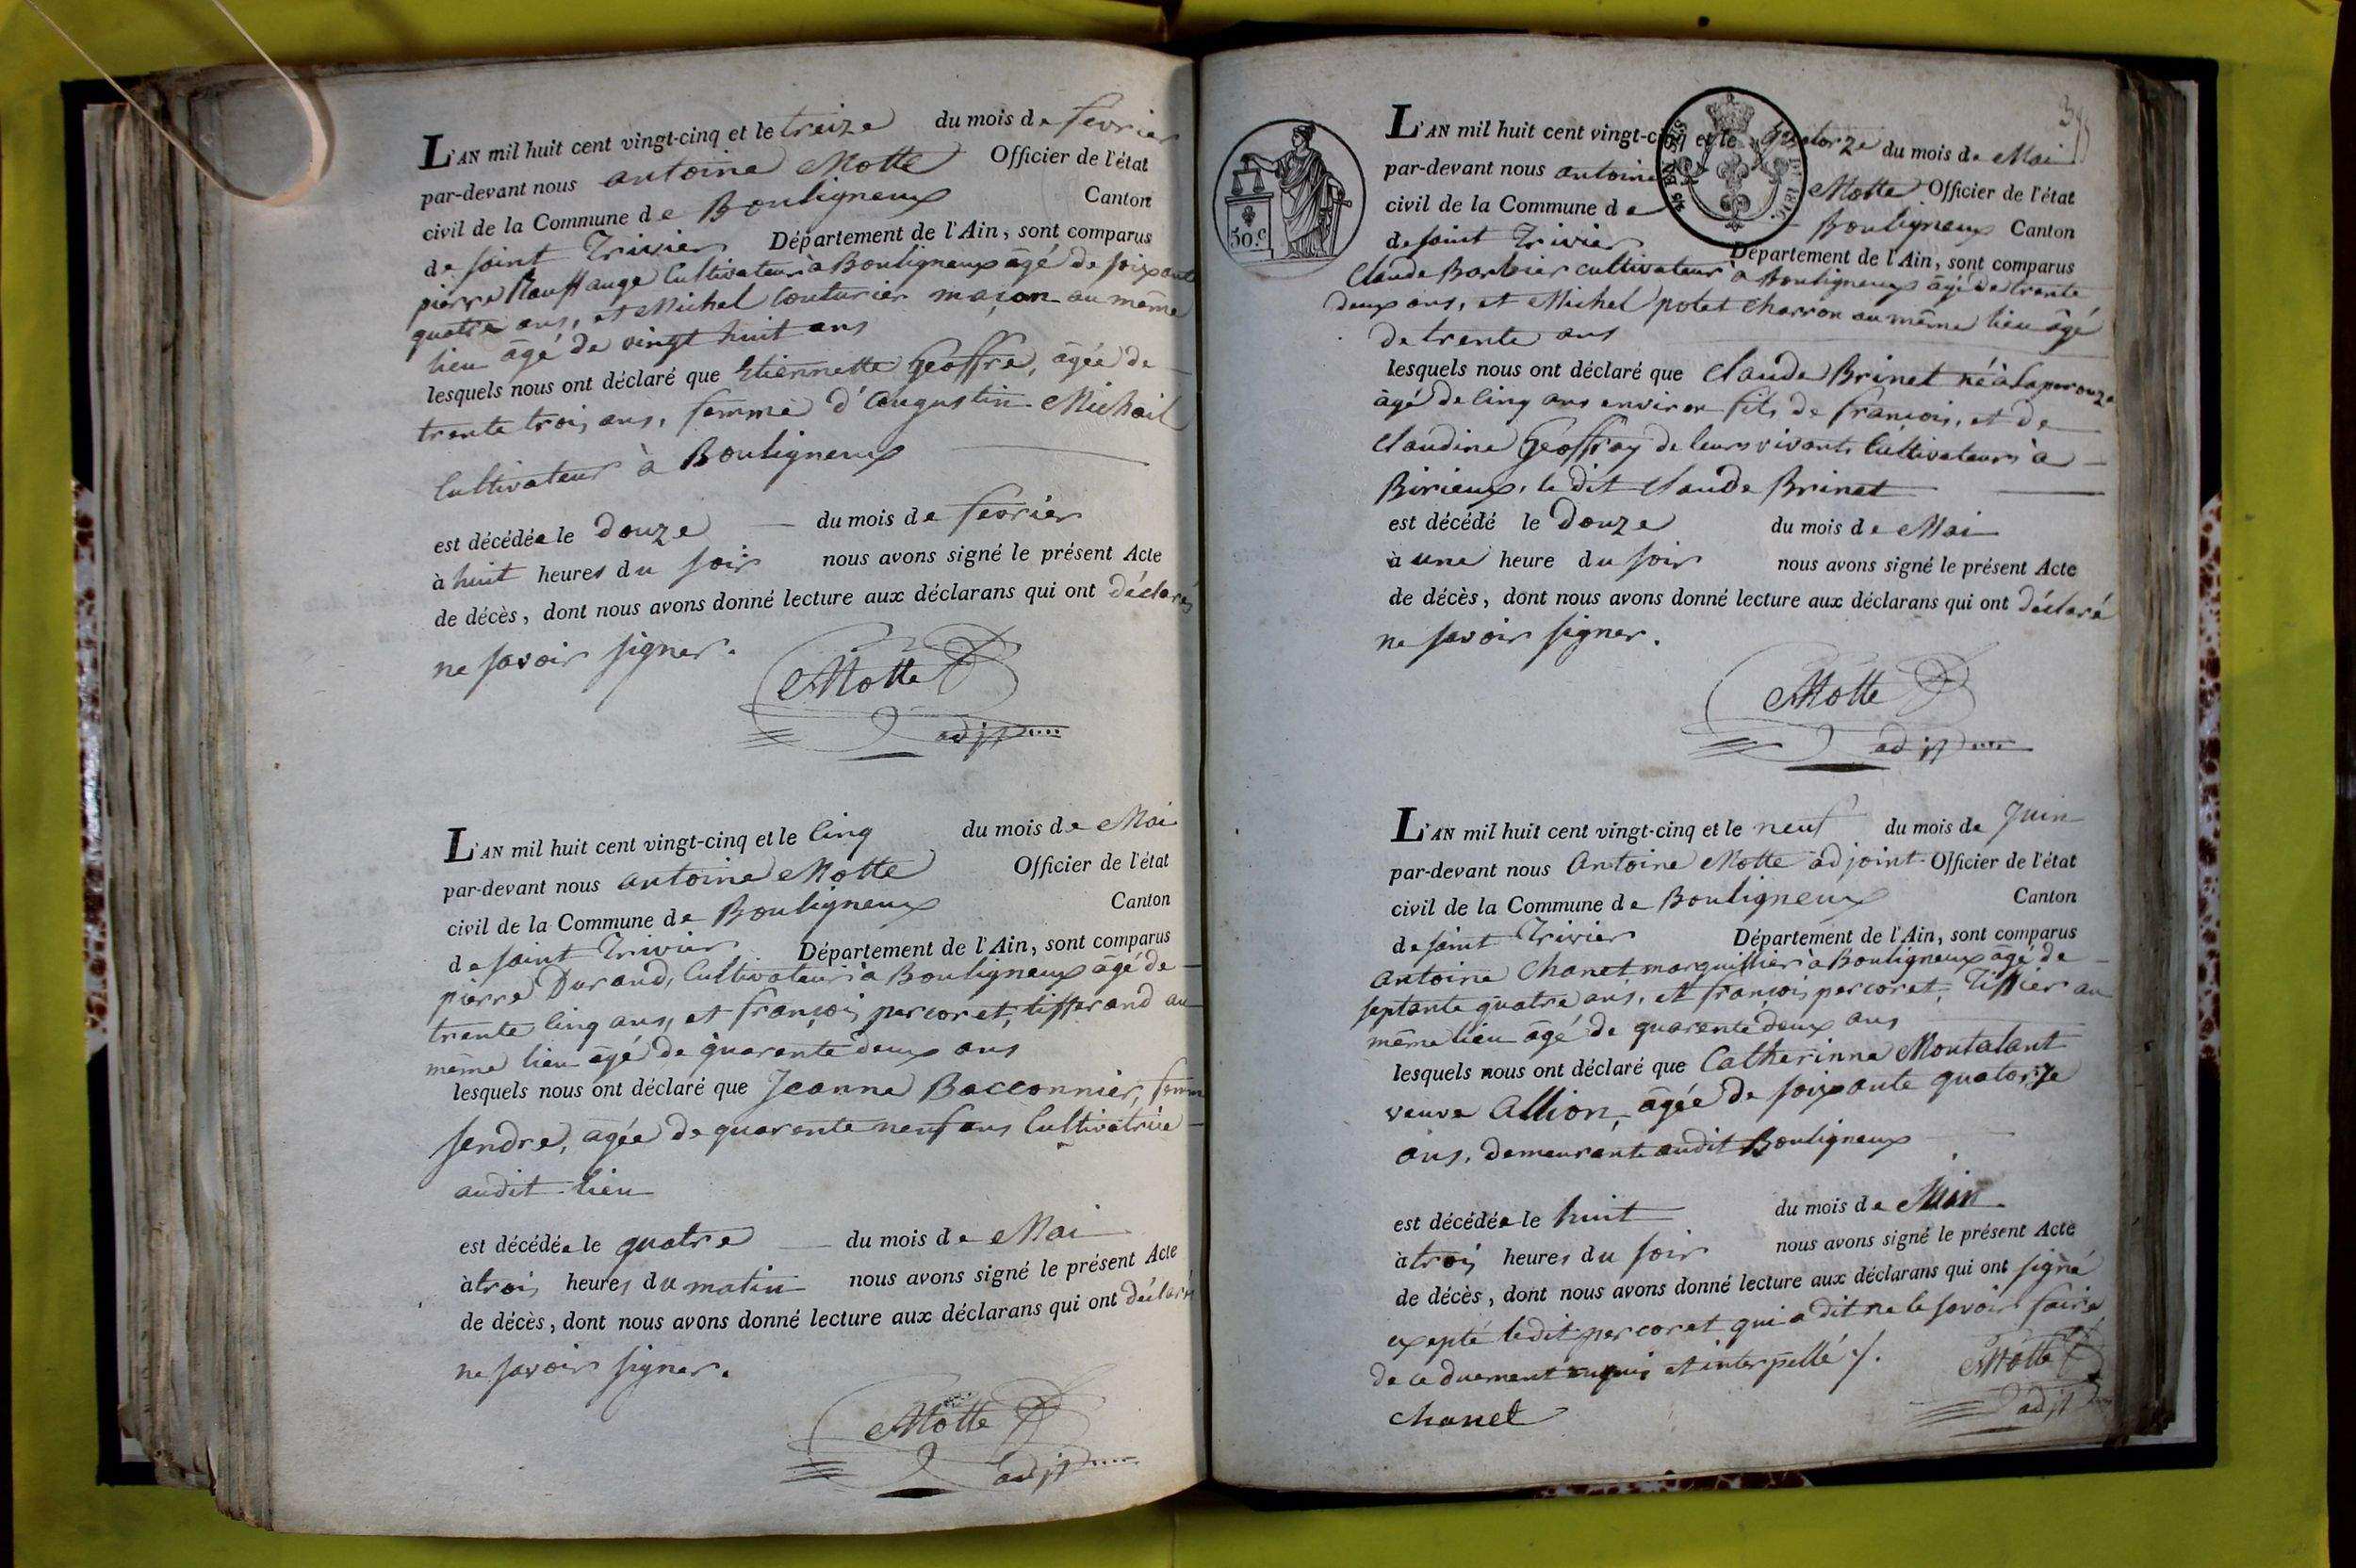 L'AN mil huit cent vingt-cinq et le treize du mois de fevrier
par-devant nous antoine Motte Officier de l'état
civil de la Commune de Bouligneux Canton
de saint Trivier Département de l'Ain, sont comparus
pierre Cultivateur à Bouligneux âgé de soixante
quatre ans, et Michel Couturier maçon au même
lieu âgé de vingt huit ans
lesquels nous ont déclaré que Etiennette Geoffre, âgée de
trente trois ans, femme d'augustin Michail
Cultivateur à Bouligneux
est décédée le douze du mois de fevrier
à huit heures du soir nous avons signé le présent Acte
de décès, dont nous avons donné lecture aux déclarans qui ont déclarés
ne savoir signer.
Motte
adjt
L'AN mil huit cent vingt-cinq et le cinq du mois de Mai
par-devant nous antoine Motte Officier de l'état
civil de la Commune de Bouligneux Canton
de saint Trivier Département de l'Ain, sont comparus
pierre Durand, Cultivateur à Bouligneux âgé de
trente cinq ans, et françois percoret, tisserand au
même lieu âgé de quarente deux ans
lesquels nous ont déclaré que Jeanne Bacconnier, femme
sendre, agée de quarente neuf ans Cultivatrice
audit lieu
est décédée le quatre du mois de Mai
à trois heures du matin nous avons signé le présent Acte
de décès, dont nous avons donné lecture aux déclarans qui ont déclaré
ne savoir signer.
Motte
adjt
L'AN mil huit cent vingt-cinq et le quatorze du mois de Mai
par-devant nous antoine Motte Officier de l'état
civil de la Commune de Bouligneux Canton
de saint Trivier Département de l'Ain, sont comparus
Claude Barbier cultivateur à Bouligneux âgé de trente
deux ans, et Michel potet charron au même lieu âgé
de trente ans
lesquels nous ont déclaré que Claude Brinet né à Laperouze
âgé de cinq ans environ fils de françois, et de
Claudine Geoffray de leurs vivants Cultivateurs à
Birieux, le dit Claude Brinet
est décédé le douze du mois de Mai
à une heure du soir nous avons signé le présent Acte
de décès, dont nous avons donné lecture aux déclarans qui ont déclaré
ne savoir signer.
Motte
adjt
50.c
L'AN mil huit cent vingt-cinq et le neuf du mois de Juin
par-devant nous Antoine Motte adjoint Officier de l'état
civil de la Commune de Bouligneux Canton
de saint Trivier Département de l'Ain, sont comparus
Antoine Chanet marguillier à Bouligneux âgé de
septante quatre ans, et françois percoret, Tissier au
même lieu âgé de quarente deux ans
lesquels nous ont déclaré que Catherinne Montalant
veuve Allion, agée de soixante quatorze
ans, demeurante audit Bouligneux
est décédée le huit du mois de Juin
à trois heures du soir nous avons signé le présent Acte
de décès, dont nous avons donné lecture aux déclarans qui ont signé
excepté ledit percoret qui a dit ne le savoir faire
de ce duement enquis et interpellé ./.
Motte
adjt
Chanet